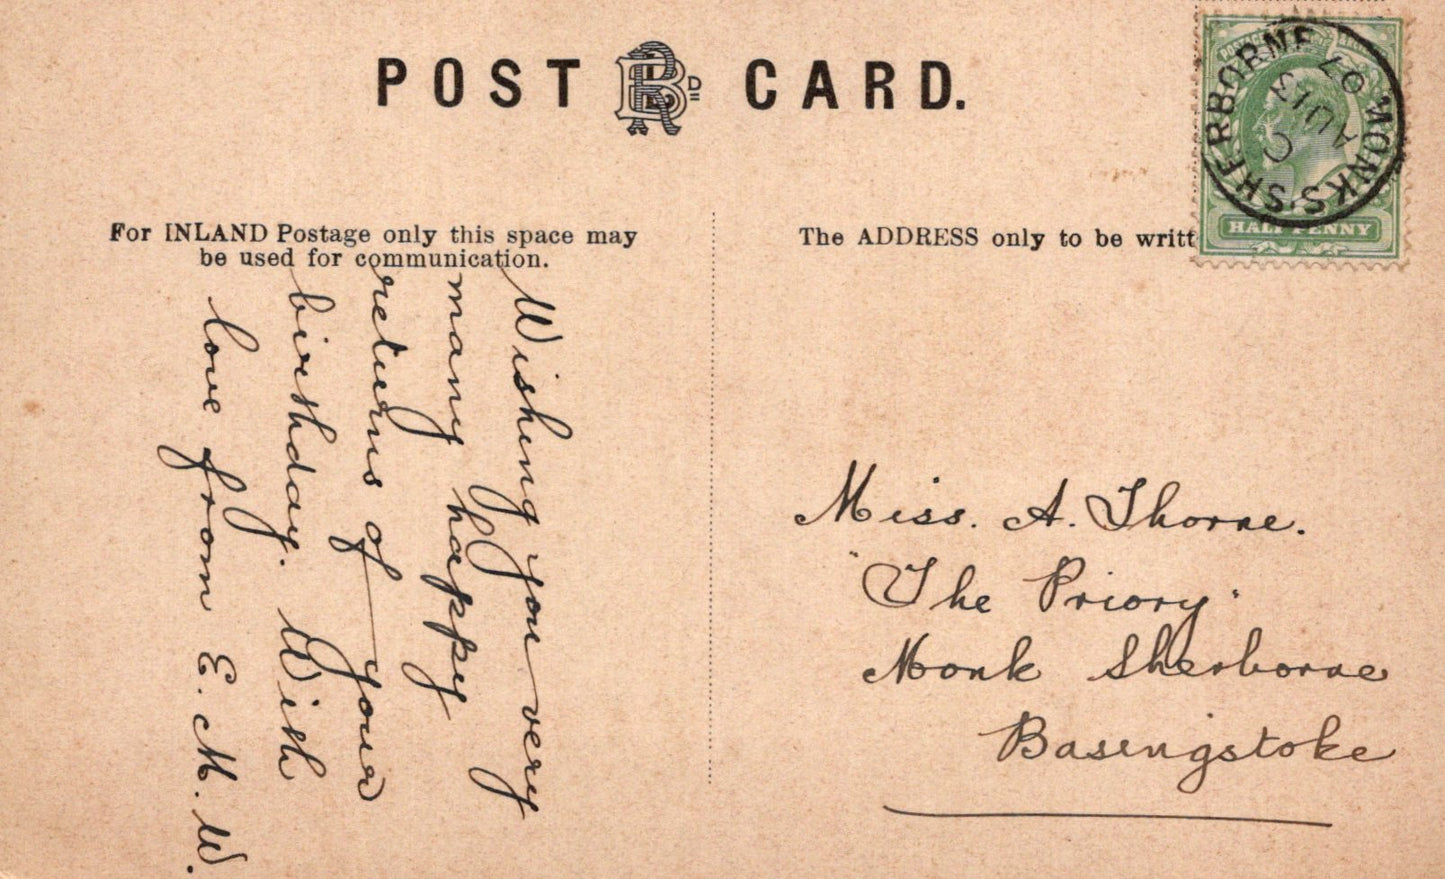 POST CARD.
For INLAND Postage only this space may
be used for communication.
The ADDRESS only to be writt
HALFPENNY
MONKS SHERBORNE
AU 13
07
Wishing you very
many happy
returns of your
birthday. With
love from E. M. W.
Miss. A. Thorne.
"The Priory"
Monk Sherborne
Basingstoke